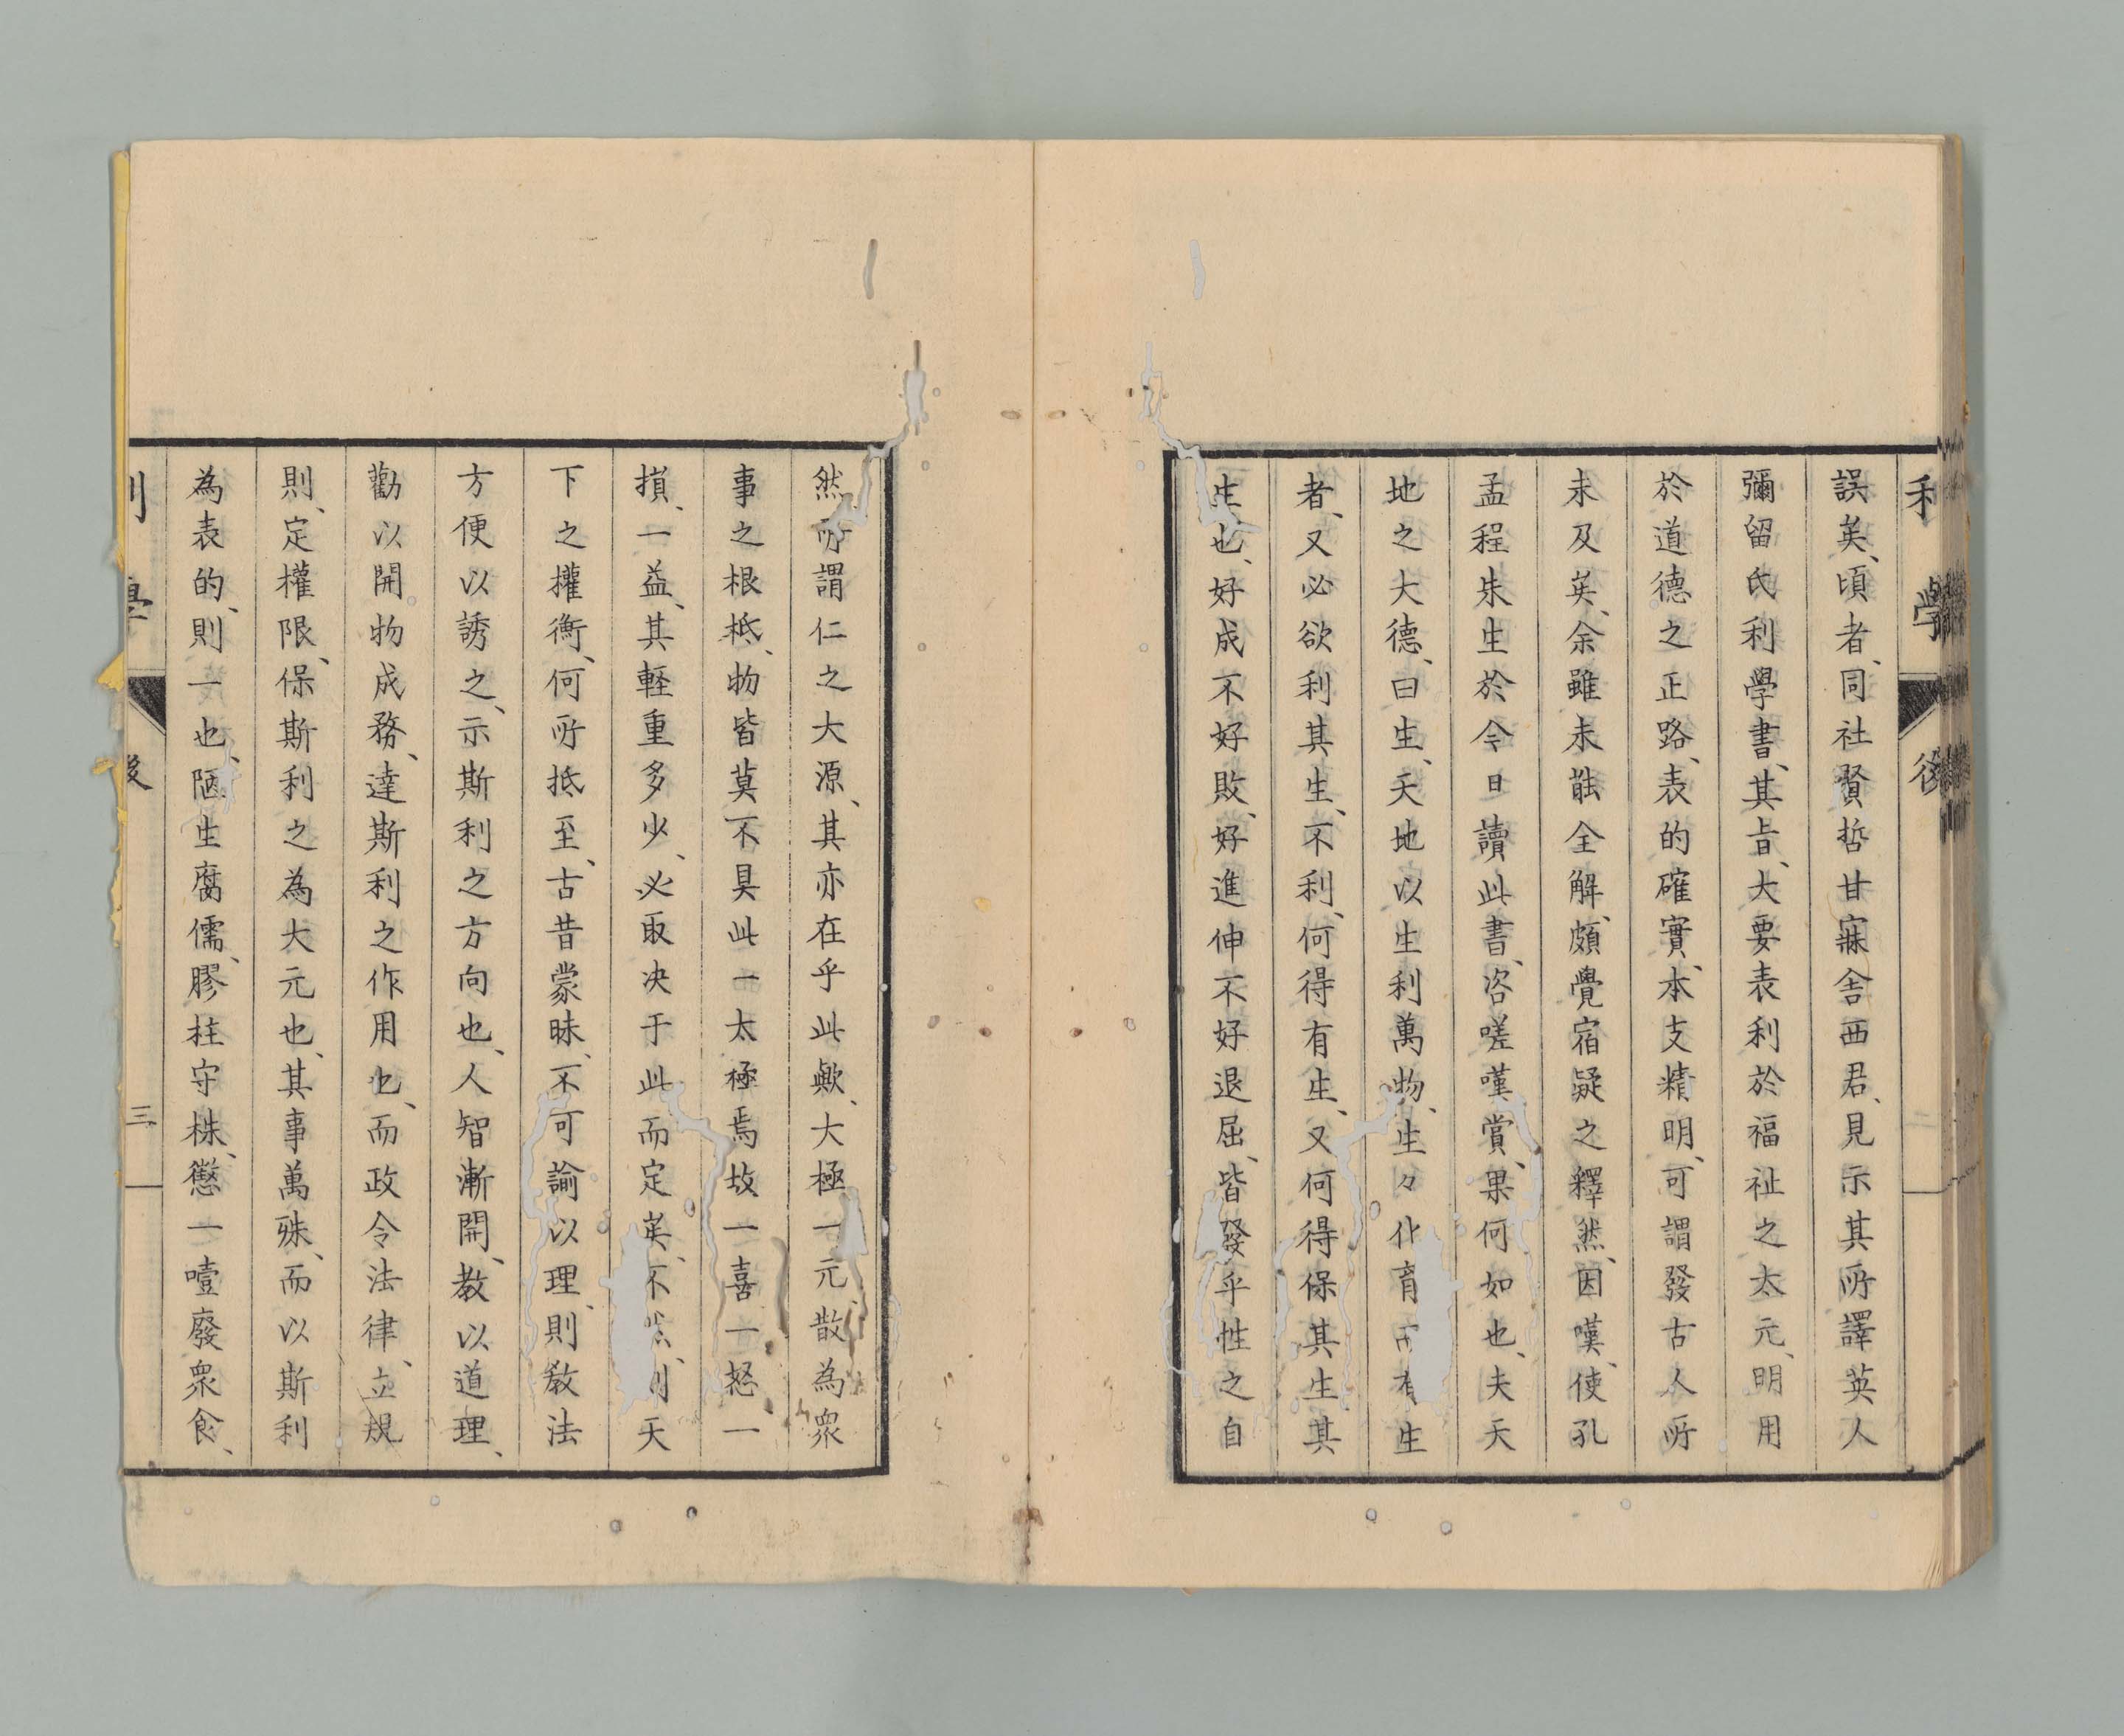 利學 後 二
誤矣、頃者、同社賢哲甘寐舍西君、見示其所譯英人
彌留氏利學書、其旨、大要表利於福祉之太元、明用
於道德之正路、表的確實、本支精明、可謂發古人所
未及矣、余雖未能全解、頗覺宿疑之釋然、因嘆、使孔
孟程朱生於今日讀此書、咨嗟嘆賞、果何如也、夫天
地之大德、曰生、天地以生利萬物、生々化育而有生
者、又必欲利其生、不利、何得有生、又何得保其生、其
生也、好成不好敗、好進伸不好退屈、皆發乎性之自
然所謂仁之大源、其亦在乎此歟、大極一元、散為衆
事之根柢、物皆莫不具此一太極焉故一喜一怒、一
損、一益、其軽重多少、必取决于此而定矣、不然、則天
下之權衡、何所抵至、古昔蒙昧、不可諭以理、則教法
方便以誘之、示斯利之方向也、人智漸開、教以道理、
勸以開物成務、達斯利之作用也、而政令法律、立規
則、定權限、保斯利之為大元也、其事萬殊、而以斯利
為表的、則一也、陋生腐儒、膠柱守株、懲一噎廢衆食、
利學 後 三